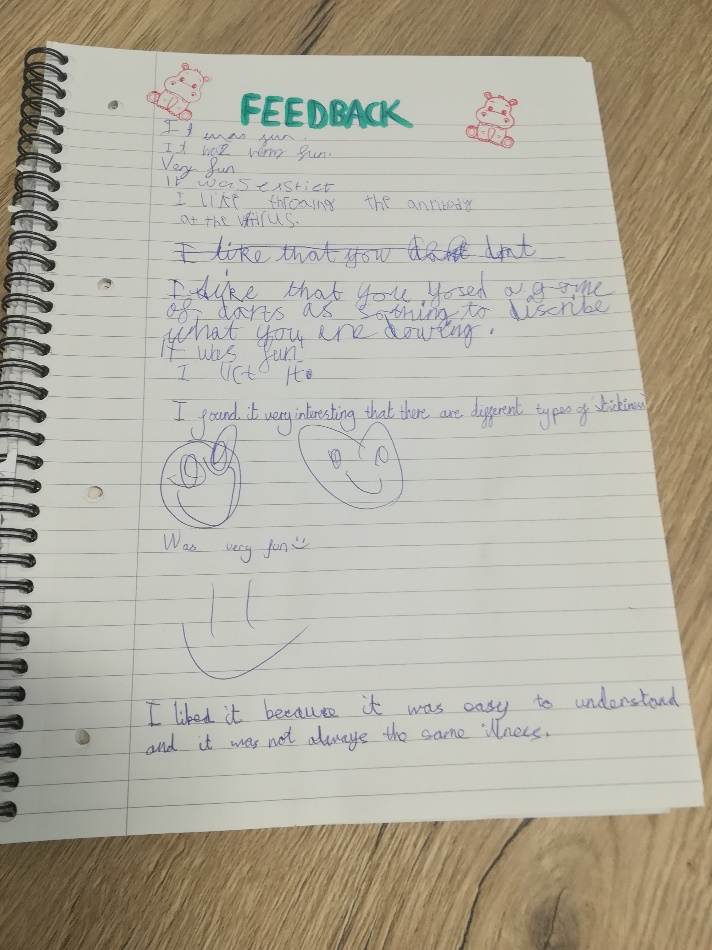 FEEDBACK
I t was fun.
It was very fun.
Very fun
It was
I like throwing the antibody
at the VIRUS.
I like that you dart
I like that you yosed a game
of darts as sothing to discribe
what you are dowing.
It was fun.
I lict it.
I found it very interesting that there are different types of 'stickiness'
Was very fun
I liked it because it was easy to understand
and it was not always the same illness.